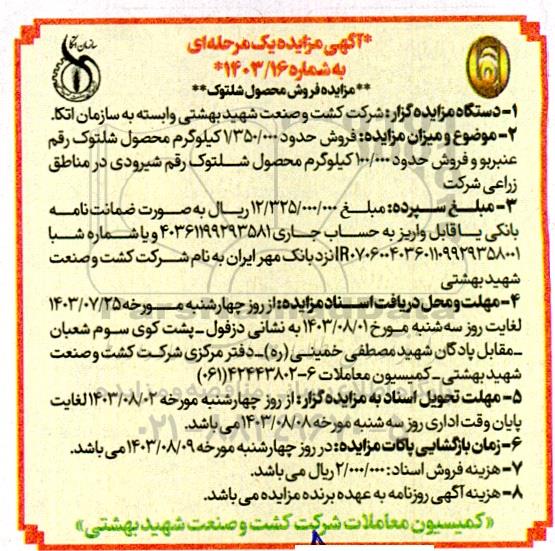 *آگهی مزایده یک مرحله‌ای
به شماره ۱۴۰۳/۱۶*
**مزایده فروش محصول شلتوک**
سازمان اتکا
۱- دستگاه مزایده گزار: شرکت کشت و صنعت شهید بهشتی وابسته به سازمان اتکا.
۲- موضوع و میزان مزایده: فروش حدود ۱/۳۵۰/۰۰۰ کیلوگرم محصول شلتوک رقم
عنبربو و فروش حدود ۱۰۰/۰۰۰ کیلوگرم محصول شلتوک رقم شیرودی در مناطق
زراعی شرکت
۳- مبلغ سپرده: مبلغ ۱۲/۳۲۵/۰۰۰/۰۰۰ ریال به صورت ضمانت نامه
بانکی یا قابل واریز به حساب جاری ۴۰۳۶۱۱۹۹۲۹۳۵۸۱ و یا شماره شبا
نزد بانک مهر ایران به نام شرکت کشت و صنعت
شهید بهشتی
۴- مهلت و محل دریافت اسناد مزایده: از روز چهارشنبه مورخه ۱۴۰۳/۰۷/۲۵
لغایت روز سه شنبه مورخ ۱۴۰۳/۰۸/۰۱ به نشانی دزفول - پشت کوی سوم شعبان
- مقابل پادگان شهید مصطفی خمینی (ره) - دفتر مرکزی شرکت کشت و صنعت
شهید بهشتی - کمیسیون معاملات ۶-۴۲۴۴۳۸۰۲ (۰۶۱)
۵- مهلت تحویل اسناد به مزایده گزار: از روز چهارشنبه مورخه ۱۴۰۳/۰۸/۰۲ لغایت
پایان وقت اداری روز سه شنبه مورخه ۱۴۰۳/۰۸/۰۸ می باشد.
۶- زمان بازگشایی پاکات مزایده: در روز چهارشنبه مورخه ۱۴۰۳/۰۸/۰۹ می باشد.
۷- هزینه فروش اسناد: ۲/۰۰۰/۰۰۰ ریال می باشد.
۸- هزینه آگهی روزنامه به عهده برنده مزایده می باشد.
«کمیسیون معاملات شرکت کشت و صنعت شهید بهشتی»